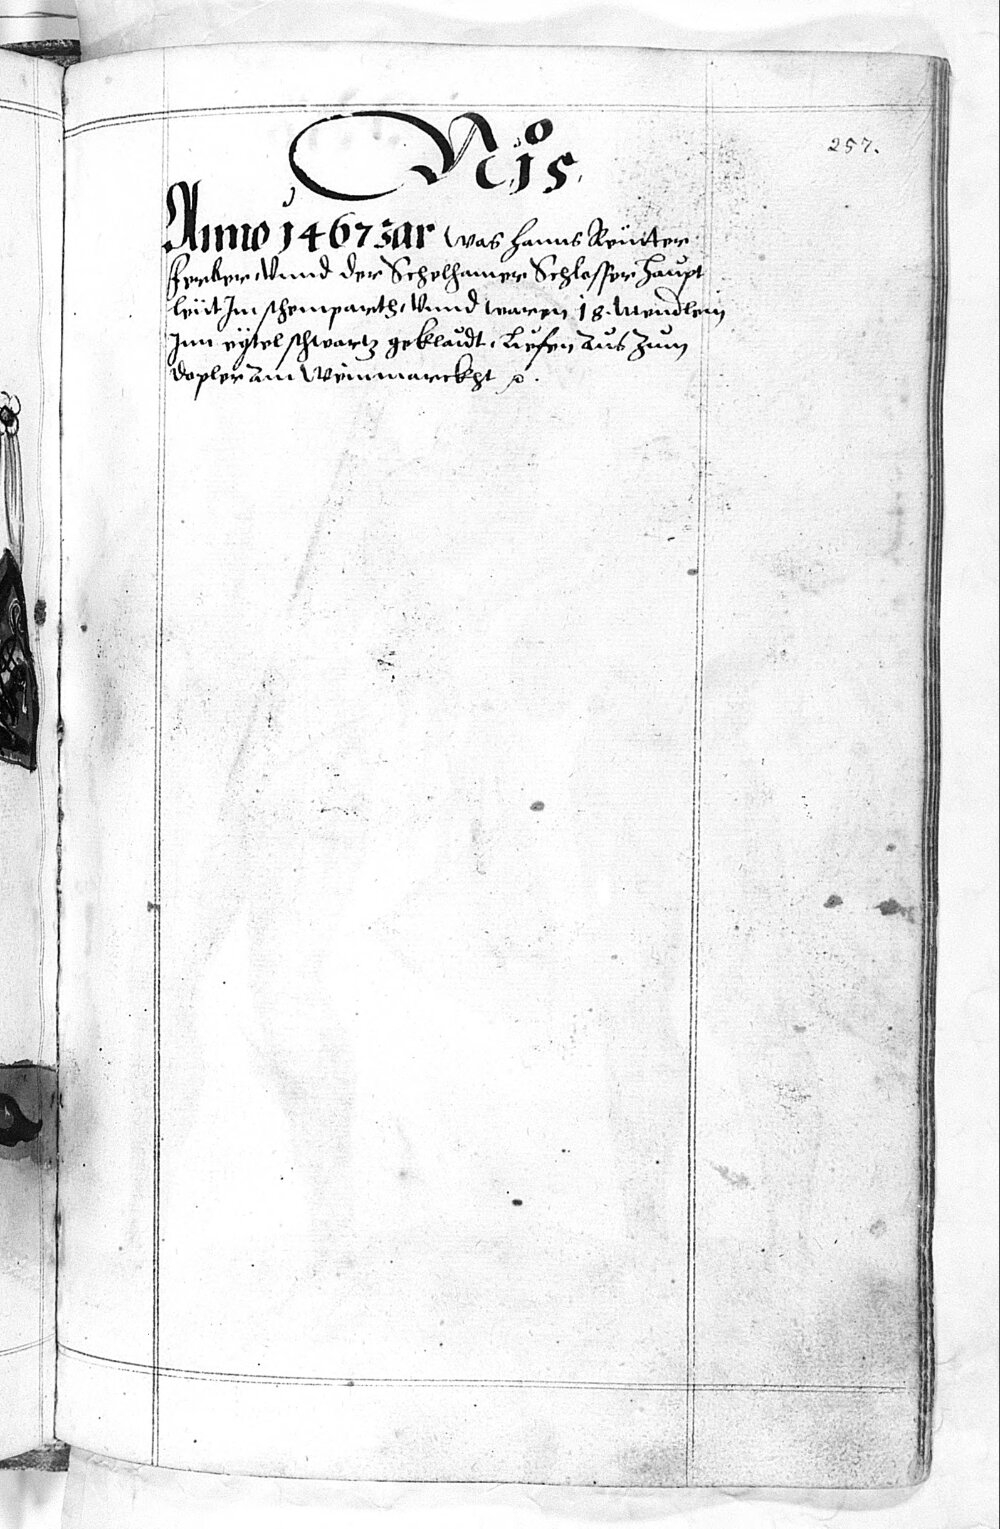 No 15.
257.
Anno 1467 Jar Was Hanns Reutter
ferber Vnnd der Schelhamer Schlosser Haupt
leüt Im schemparth, Vnnd waren 18. Mendlein
Inn eytel schwartz geklaidt. Lieffen aus Zum
dopler am Weinmarckht